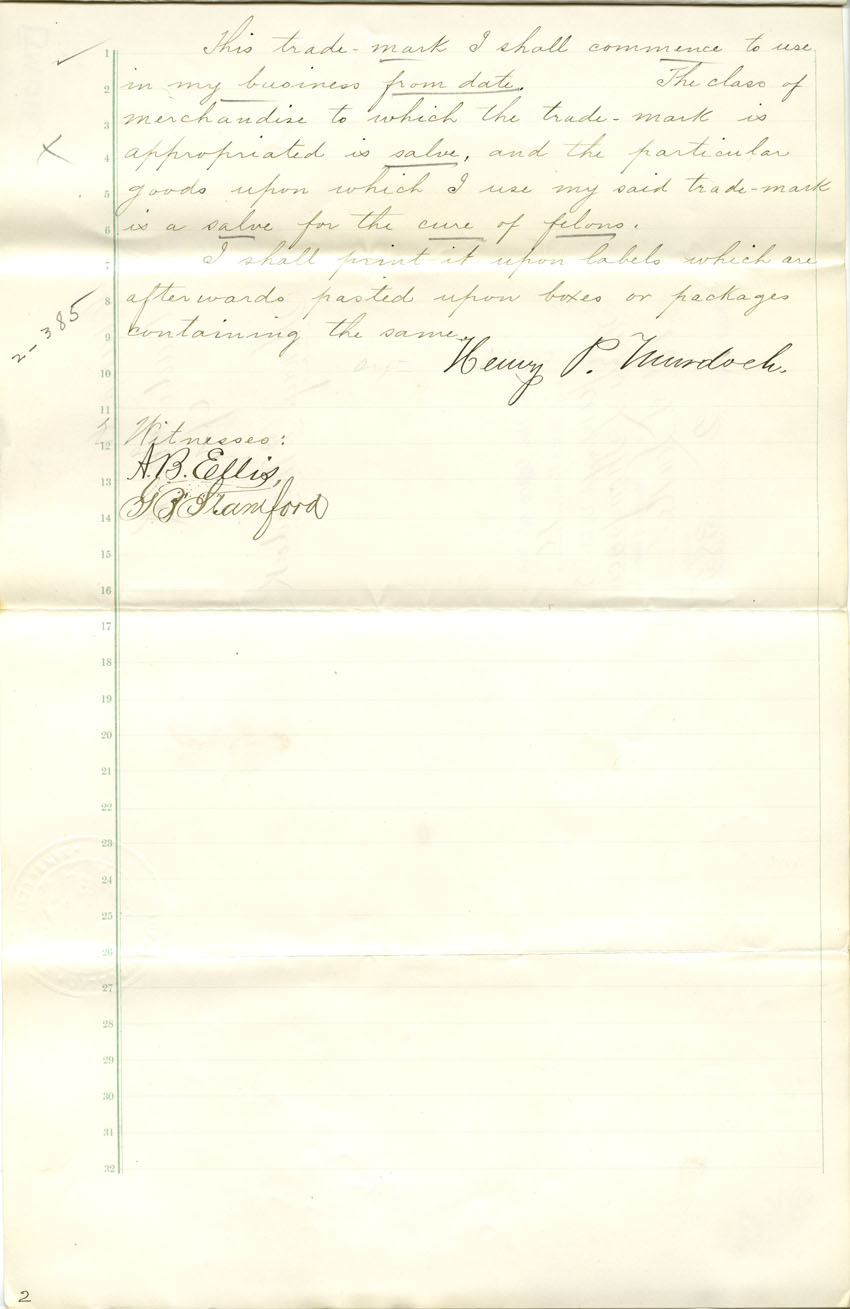 This trade-mark I shall commence to use
in my business from date. The class of
merchandise to which the trade-mark is
appropriated is salve, and the particular
goods upon which I use my said trade-mark
is a salve for the cure of felons.
I shall print it upon labels which are
afterwards pasted upon boxes or packages
containing the same.
Henry P. Murdoch.
2-385
Witnesses:
A. B. Ellis,
Stamford
1
2
3
4
5
6
7
8
9
10
11
12
13
14
15
16
17
18
19
20
21
22
23
24
25
26
27
28
29
30
31
32
2